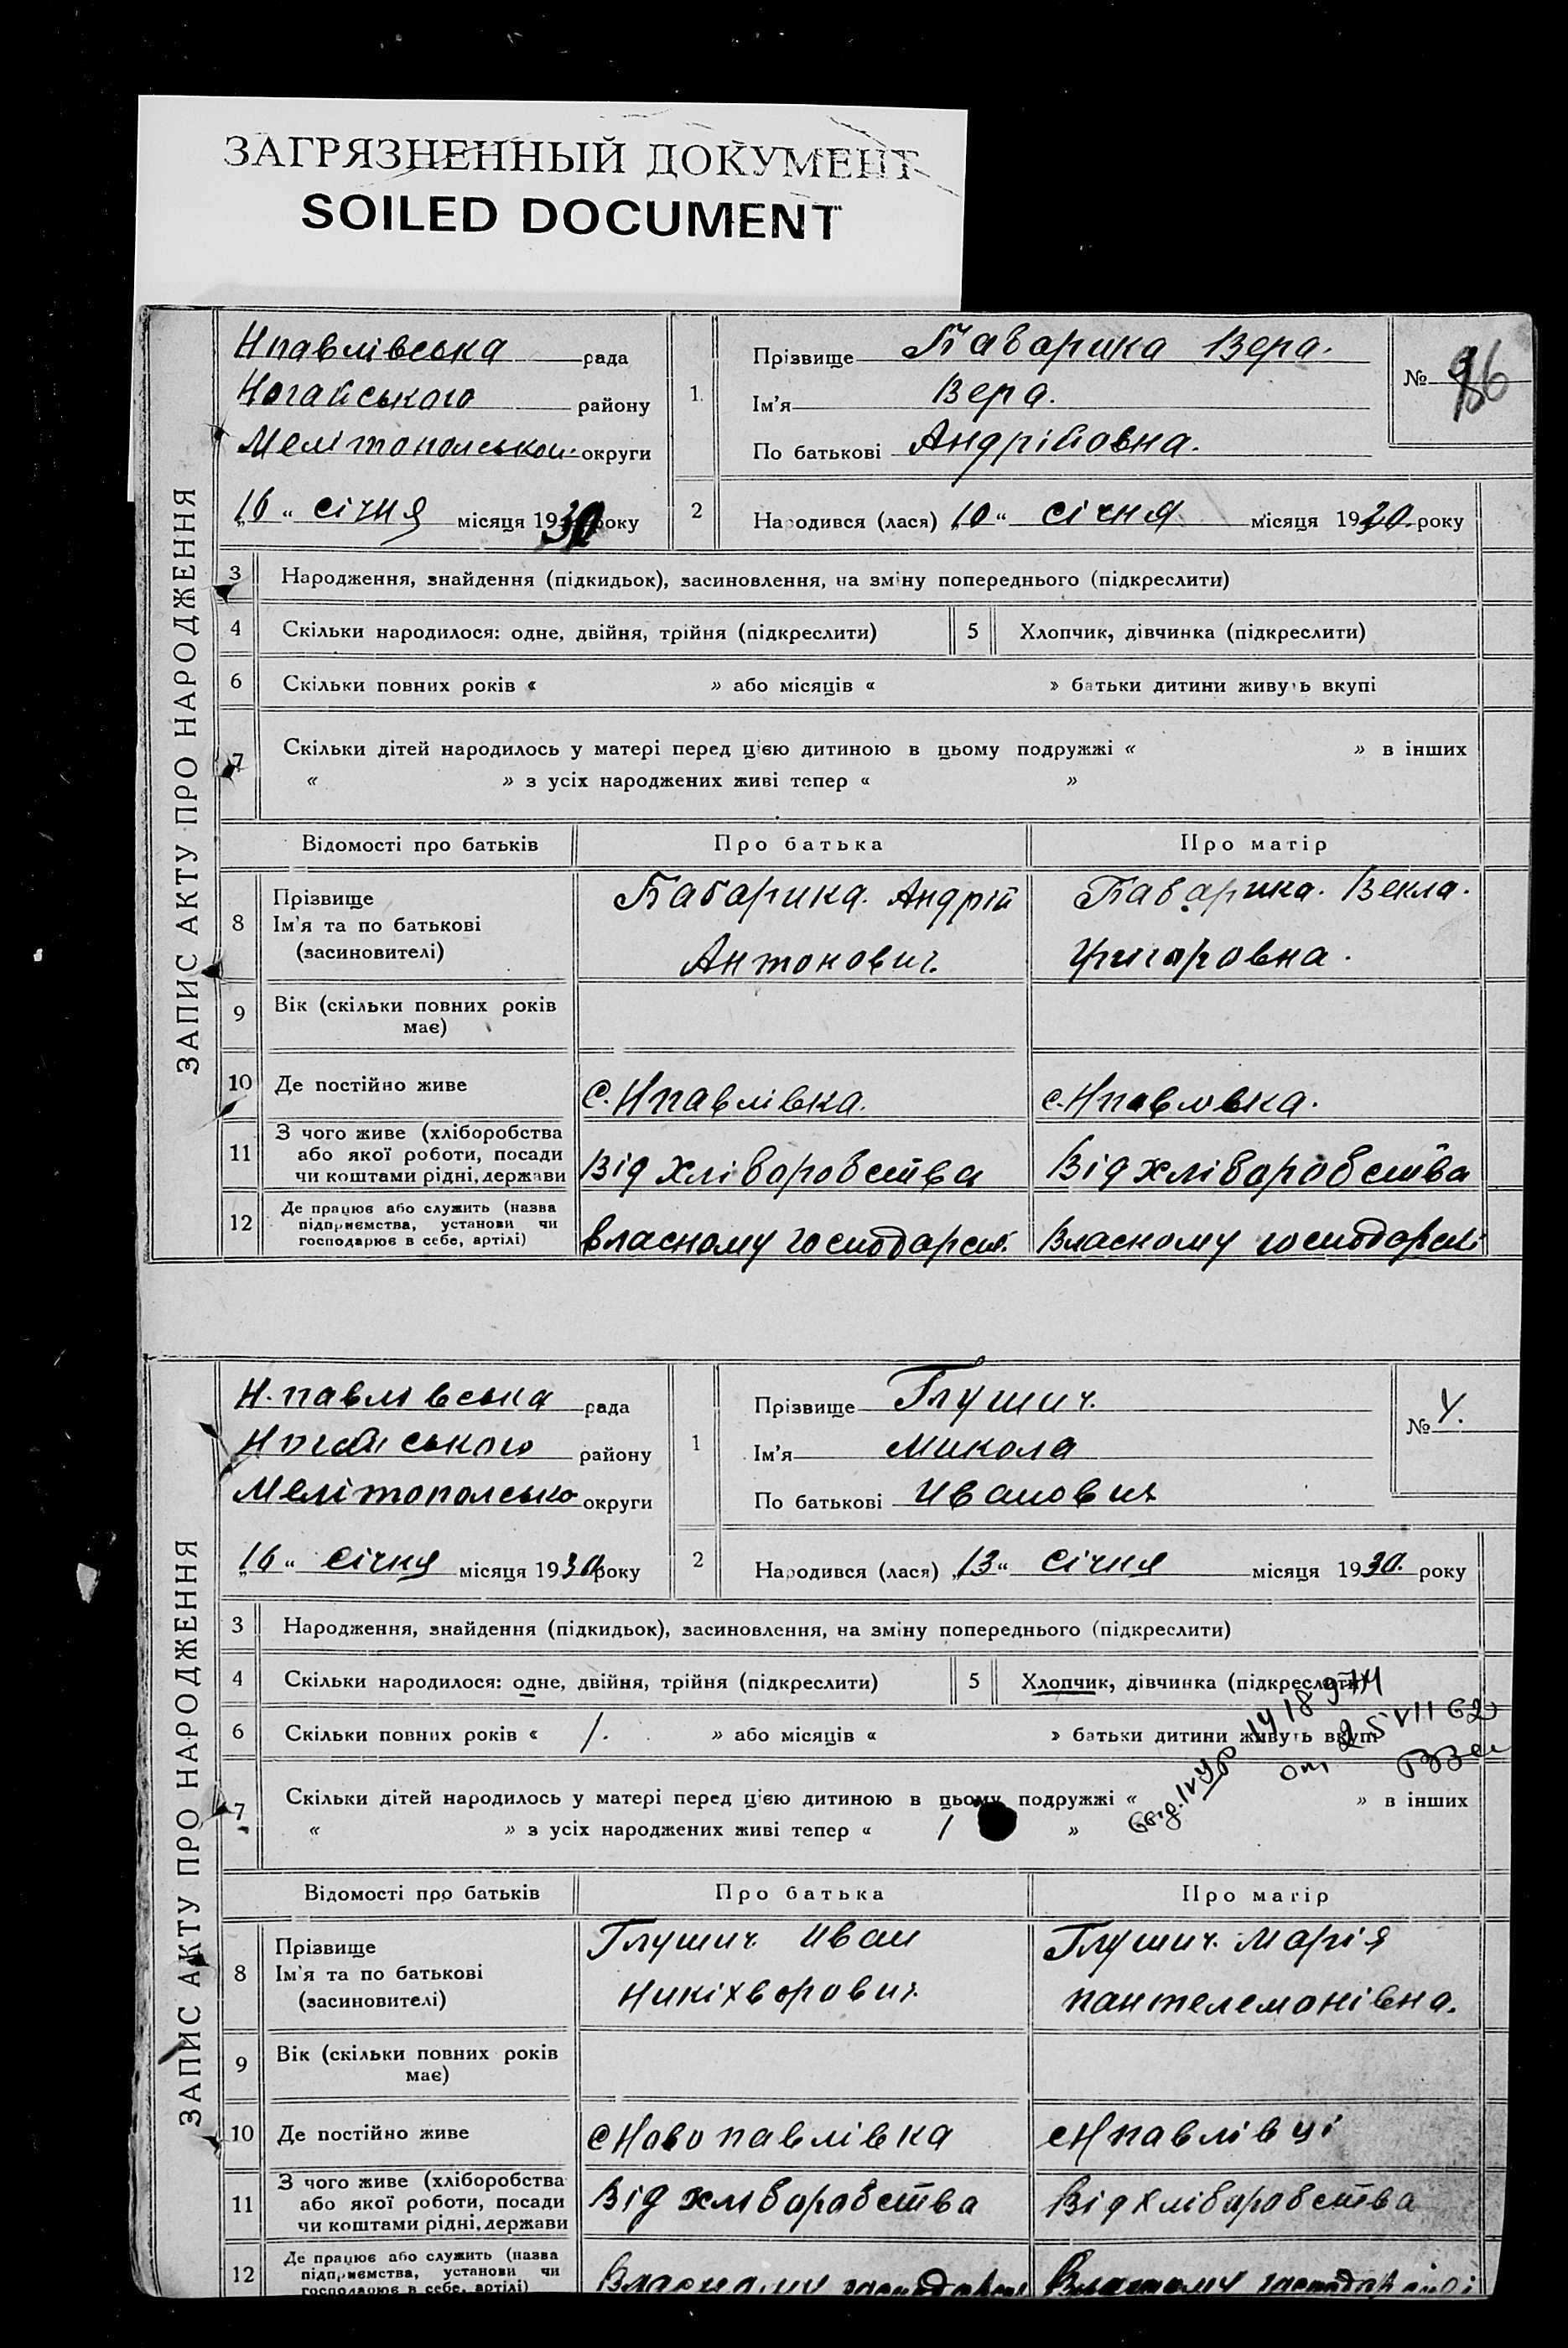 ЗАГРЯЗНЕННЫЙ ДОКУМЕНТ
SOILED DOCUMENT
ЗАПИС АКТУ ПРО НАРОДЖЕННЯ
Нпавлівська рада
Ногайського району
Мелітопольскои округи
„16“ січня місяця 1930 року
1. Прізвище Бабарика Вера.
Ім'я Вера.
По батькові Андрійовна.
№
2 Народився (лася) „10“ січня місяця 1930. року
3 Народження, знайдення (підкидьок), засиновлення, на зміну попереднього (підкреслити)
4 Скільки народилося: одне, двійня, трійня (підкреслити) 5 Хлопчик, дівчинка (підкреслити)
6 Скільки повних років « » або місяців « » батьки дитини живуть вкупі
7 Скільки дітей народилось у матері перед цією дитиною в цьому подружжі « » в інших
« » з усіх народжених живі тепер « »
Відомості про батьків Про батька Про матір
8 Прізвище
Ім'я та по батькові
(засиновителі)
Бабарика. Андрій
Антонович.
Бабарика. Векла.
Григоровна.
9 Вік (скільки повних років
має)
10 Де постійно живе с. Нпавлівка. с. Нпавловка.
11 З чого живе (хліборобства
або якої роботи, посади
чи коштами рідні, держави
Від хліборобства Від хліборобства
12 Де працює або служить (назва
підприємства, установи чи
господарює в себе, артілі)
власному Власному
ЗАПИС АКТУ ПРО НАРОДЖЕННЯ
Н. павлівська рада
Ногайського району
Мелітопольсько округи
„16“ січня місяця 1930 року
1 Прізвище Глушич.
Ім'я Микола
По батькові Иванович
№ 4.
2 Народився (лася) „13“ січня місяця 1930. року
3 Народження, знайдення (підкидьок), засиновлення, на зміну попереднього (підкреслити)
4 Скільки народилося: одне, двійня, трійня (підкреслити) 5 Хлопчик, дівчинка (підкреслити)
6 Скільки повних років « 1. » або місяців « » батьки дитини живуть вкупі
7 Скільки дітей народилось у матері перед цією дитиною в цьому подружжі « » в інших
« » з усіх народжених живі тепер « 1 »
Відомості про батьків Про батька Про матір
8 Прізвище
Ім'я та по батькові
(засиновителі)
Глушич Иван
Никіхворович.
Глушич. Марія
пантелемонівна.
9 Вік (скільки повних років
має)
10 Де постійно живе с Ново павлівка с Нпавлівці
11 З чого живе (хліборобства
або якої роботи, посади
чи коштами рідні, держави
Від хліборобства Від хліборобства
12 Де працює або служить (назва
підприємства, установи чи
господарює в себе, артілі)
Власному Власному